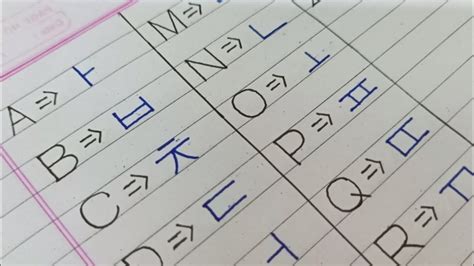 A => ㅏ
B => ㅂ
C => ㅊ
D => ㄷ
ㅓ
M =>
N => ㄴ
O => ㅗ
P => ㅍ
Q =>
R =>